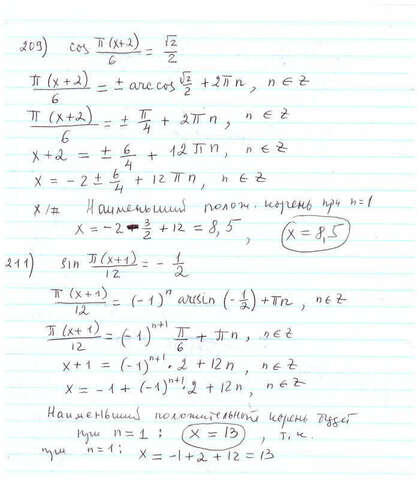 209) cos π(x+2)/6 = √2/2
π(x+2)/6 = ± arccos √2/2 + 2πn, n∈Z
π(x+2)/6 = ± π/4 + 2πn, n∈Z
x+2 = ± 6/4 + 12πn, n∈Z
x = -2 ± 6/4 + 12πn, n∈Z
Наименьший полож. корень при n=1
x = -2 - 3/2 + 12 = 8,5, x = 8,5
211) sin π(x+1)/12 = - 1/2
π(x+1)/12 = (-1)^n arcsin(-1/2) + πn, n∈Z
π(x+1)/12 = (-1)^{n+1} π/6 + πn, n∈Z
x+1 = (-1)^{n+1} · 2 + 12n, n∈Z
x = -1 + (-1)^{n+1} · 2 + 12n, n∈Z
Наименьший положительный корень будет
при n=1: x = 13, т.к.
при n=1: x = -1+2+12 = 13